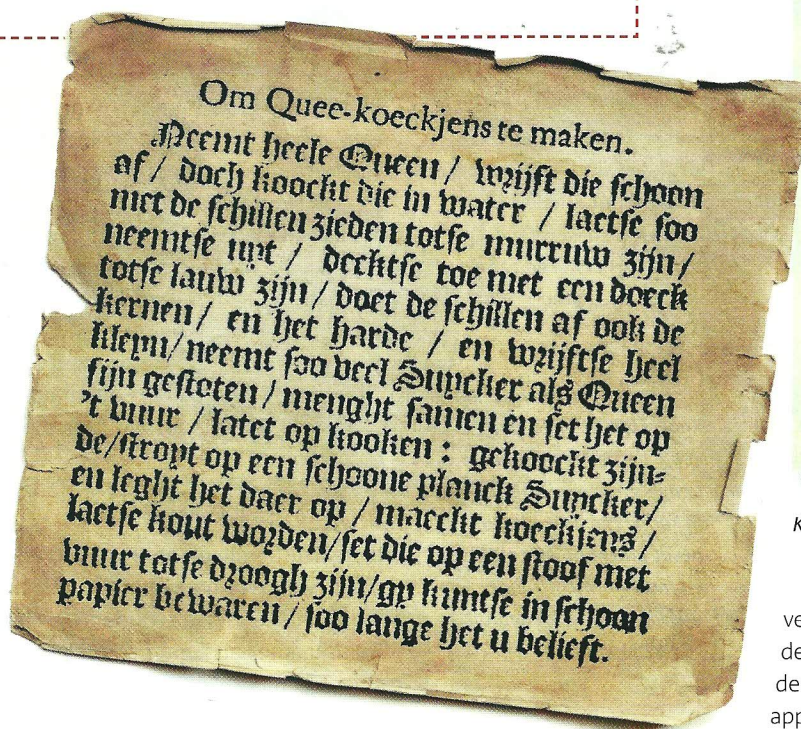 Om Quee-koeckjens te maken.
Neemt heele Queen / wrijft die schoon
af / doch koockt die in water / laetse soo
met de schillen zieden totse murruw zijn /
neemtse uyt / decktse toe met een doeck
totse lauw zijn / doet de schillen af ook de
kernen / en het harde / en wrijftse heel
kleyn / neemt soo veel Suycker als Queen
fijn gestoten / menght samen en set het op
't vuur / latet op kooken : gekoockt zijn-
de / stroyt op een schoone planck Suycker /
en leght het daer op / maeckt koeckjens /
laetse kout worden / set die op een stoof met
vuur totse droogh zijn / gy kuntse in schoon
papier bewaren / soo lange het u belieft.
K
ve
de
de
app